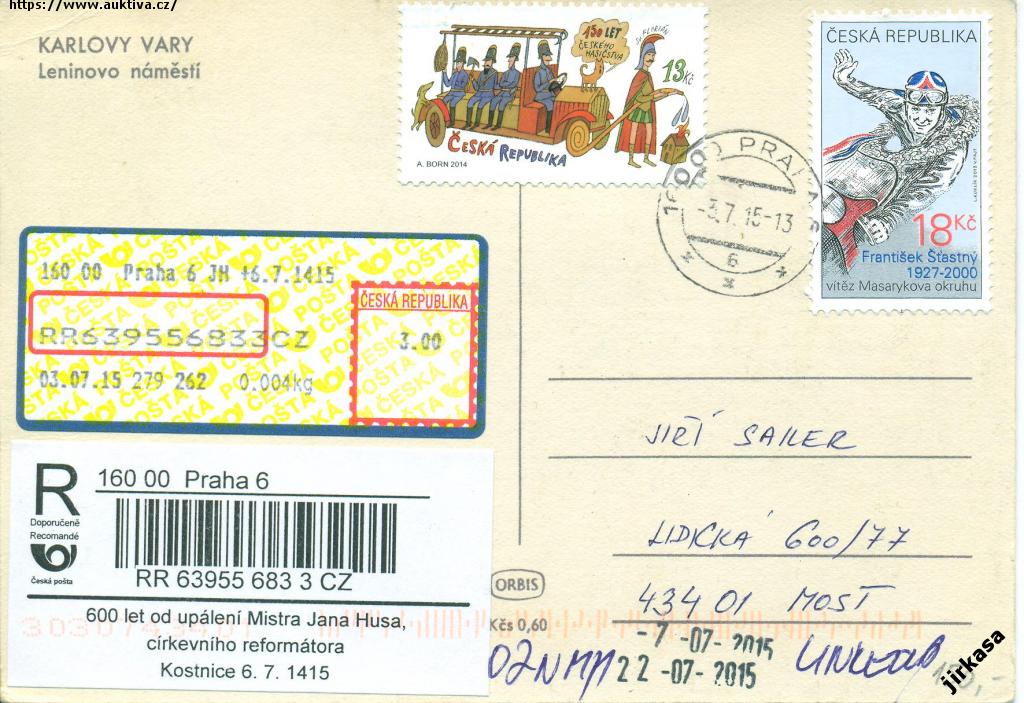 https://www.auktiva.cz/
KARLOVY VARY
Leninovo náměstí
150 LET
ČESKÉHO
HASIČSTVA
Sv. FLORIÁN
13Kč
ČESKÁ REPUBLIKA
A. BORN 2014
ČESKÁ REPUBLIKA
18Kč
František Šťastný
1927-2000
vítěz Masarykova okruhu
-3.7.15-13
6
160 00 Praha 6 JH +6.7.1415
ČESKÁ REPUBLIKA
RR639556833CZ
3.00
03.07.15 279 262 0.004kg
ČESKÁ POŠTA
R
160 00 Praha 6
Doporučeně
Recomandé
Česká pošta
RR 63955 683 3 CZ
600 let od upálení Mistra Jana Husa,
církevního reformátora
Kostnice 6. 7. 1415
JIŘÍ SAILER
LIDICKÁ 600/77
434 01 MOST
ORBIS
Kčs 0,60
-7 -07- 2015
22 -07- 2015
jirkasa